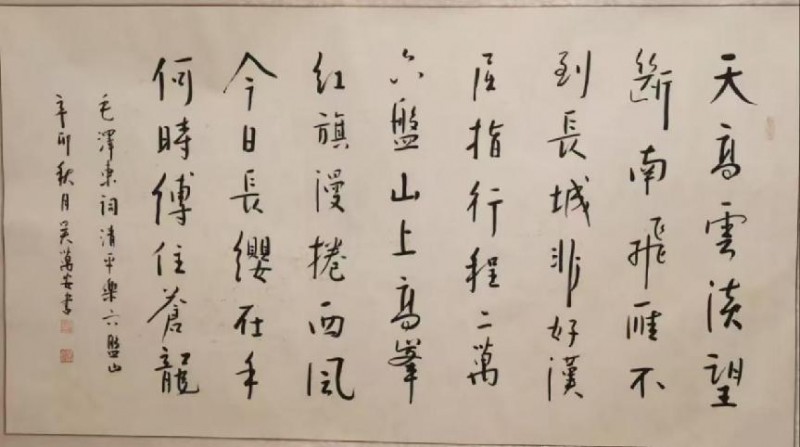 天高雲淡望
斷南飛雁不
到長城非好漢
屈指行程二萬
六盤山上高峯
紅旗漫捲西風
今日長纓在手
何時縛住蒼龍
毛澤東詞清平樂六盤山
辛卯秋月吴萬安書